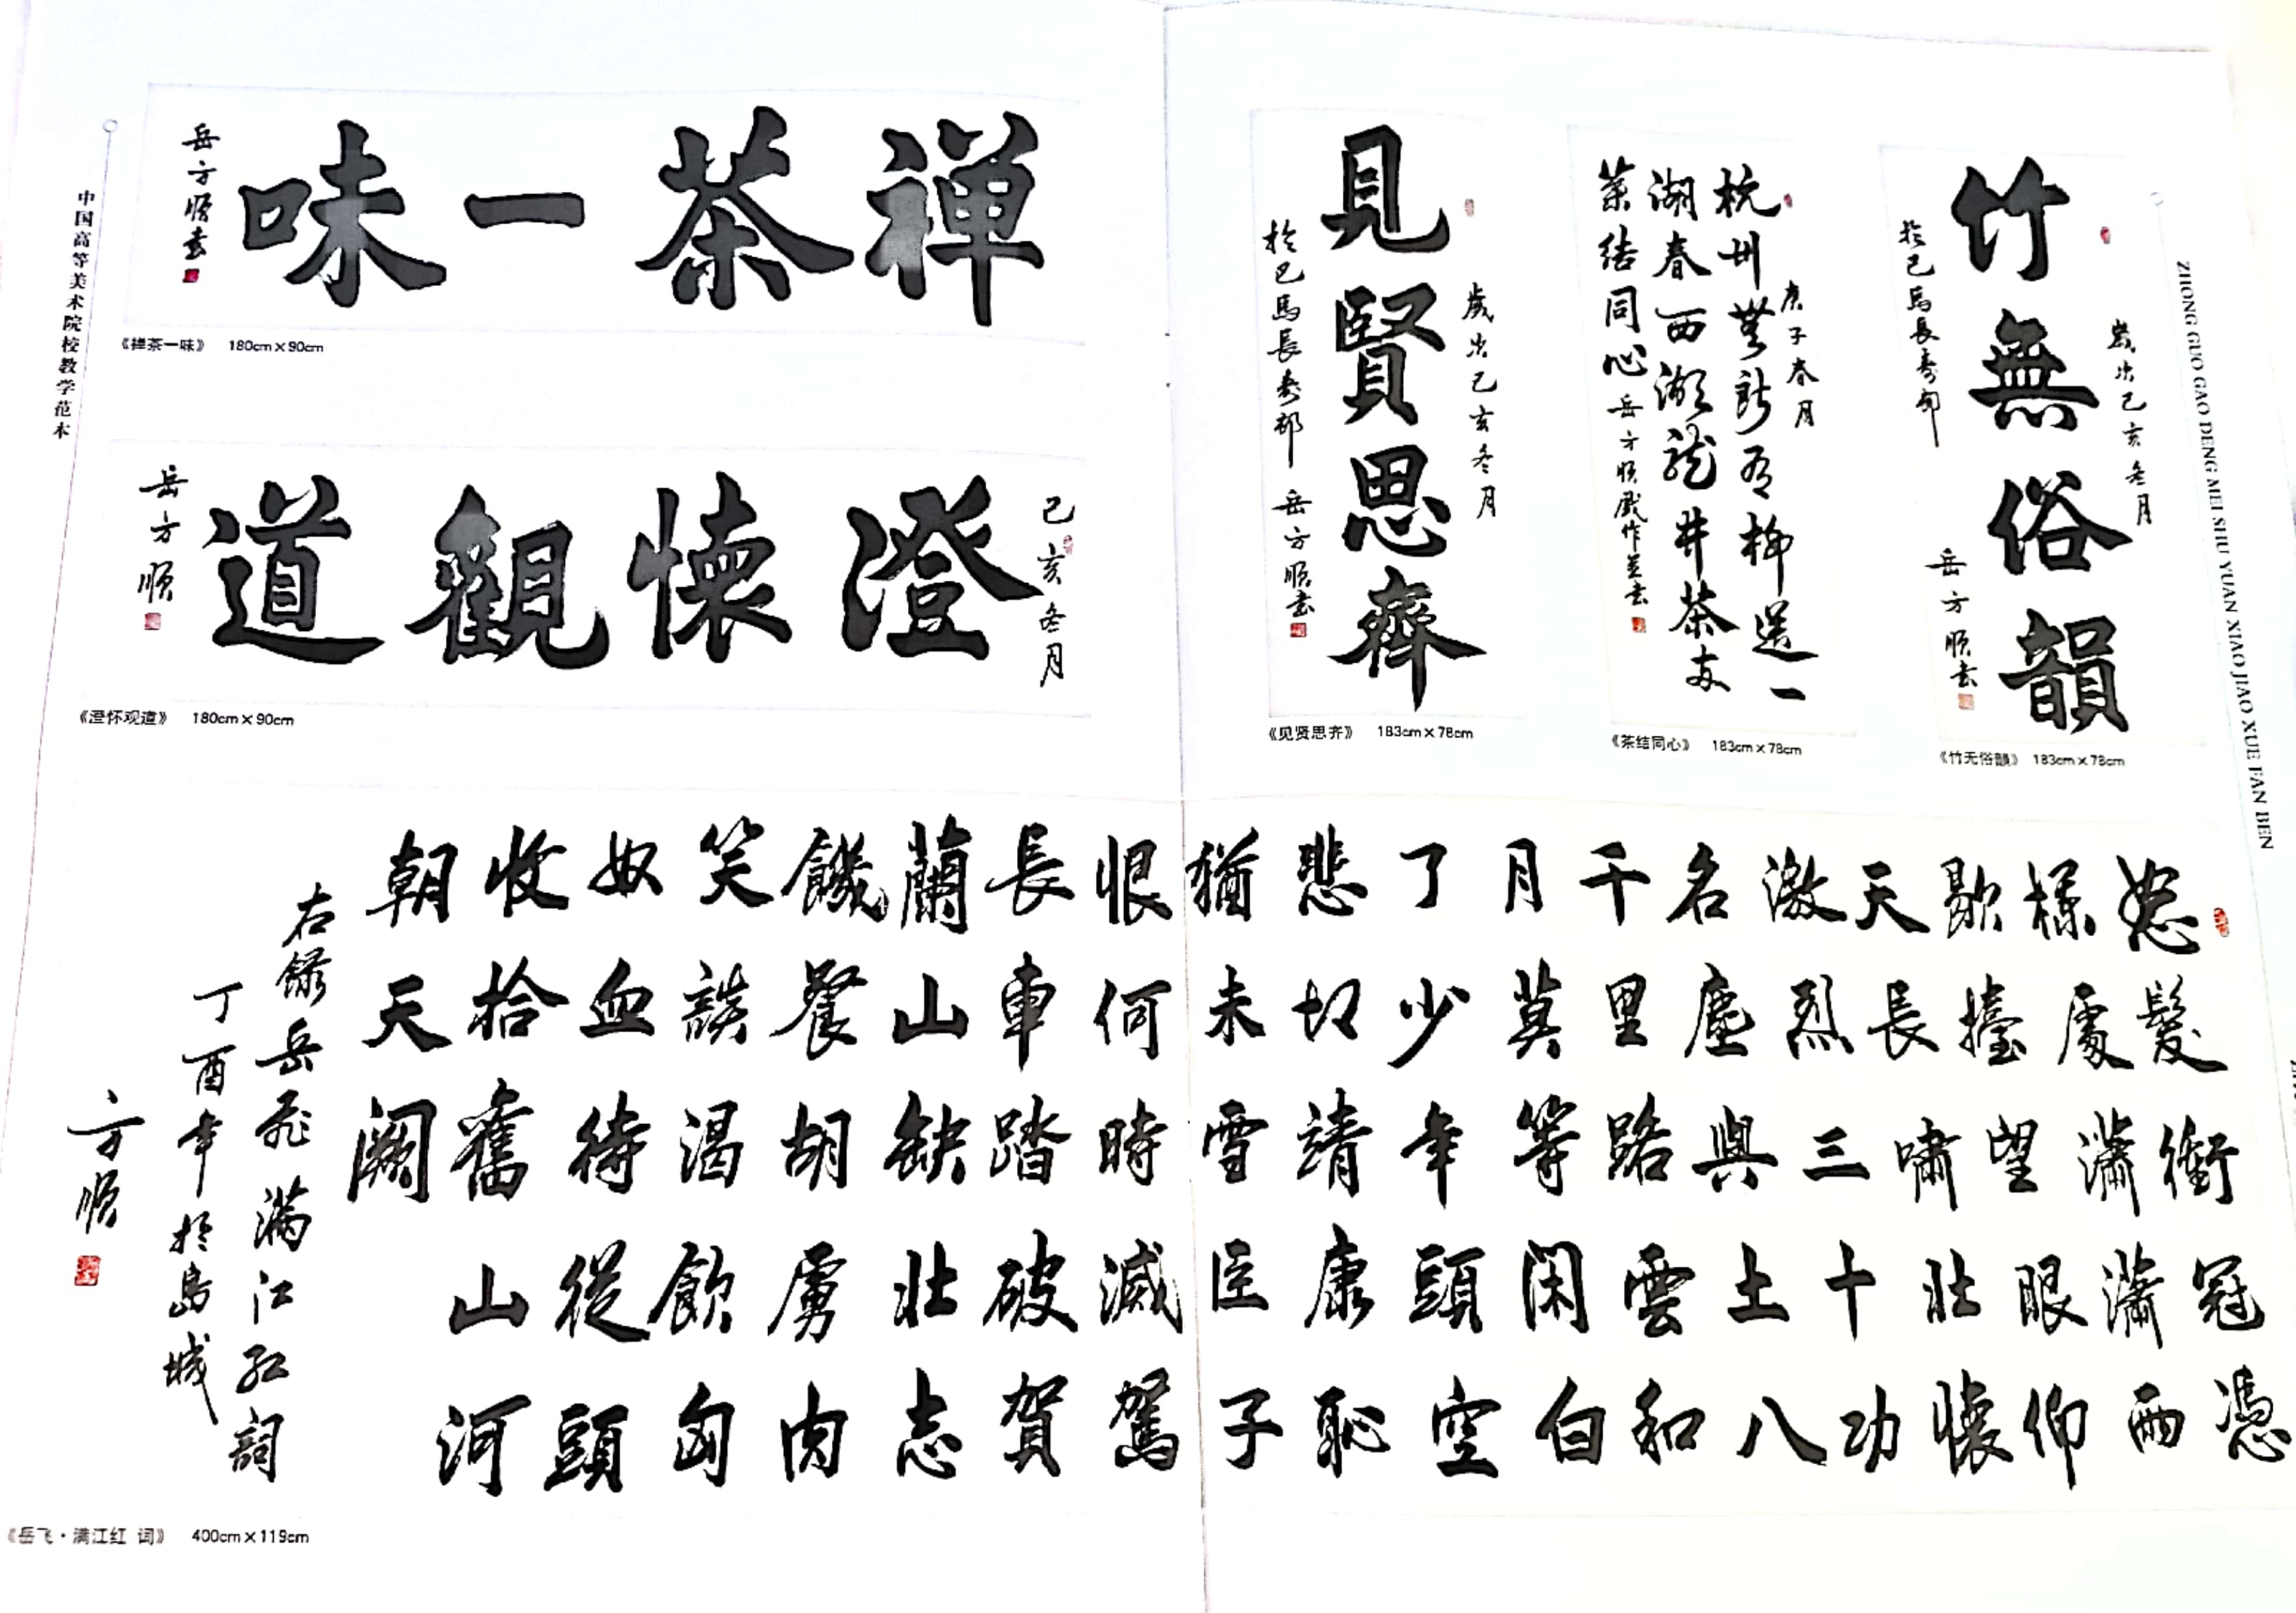 中国高等美术院校教学范本
禅茶一味
岳方順書
《禅茶一味》 180cm×90cm
己亥冬月
澄懷觀道
岳方順
《澄怀观道》 180cm×90cm
歲次己亥冬月
見賢思齊
於巴馬長壽鄉 岳方順書
《见贤思齐》 183cm×78cm
庚子春月
杭州無所有聊送一
湖春西湖龍井茶友
茶結同心 岳方順戲作並書
《茶结同心》 183cm×78cm
歲次己亥冬月
竹無俗韻
於巴馬長壽鄉 岳方順書
《竹无俗韻》 183cm×78cm
ZHONG GUO GAO DENG MEI SHU YUAN XIAO JIAO XUE FAN BEN
怒髮衝冠憑
欄處瀟瀟雨
歇擡望眼仰
天長嘯壯懷
激烈三十功
名塵與土八
千里路雲和
月莫等閑白
了少年頭空
悲切靖康恥
猶未雪臣子
恨何時滅駕
長車踏破賀
蘭山缺壯志
饑餐胡虜肉
笑談渴飲匈
奴血待從頭
收拾舊山河
朝天闕
右錄岳飛滿江紅詞
丁酉年於島城
方順
《岳飞·满江红 词》 400cm×119cm